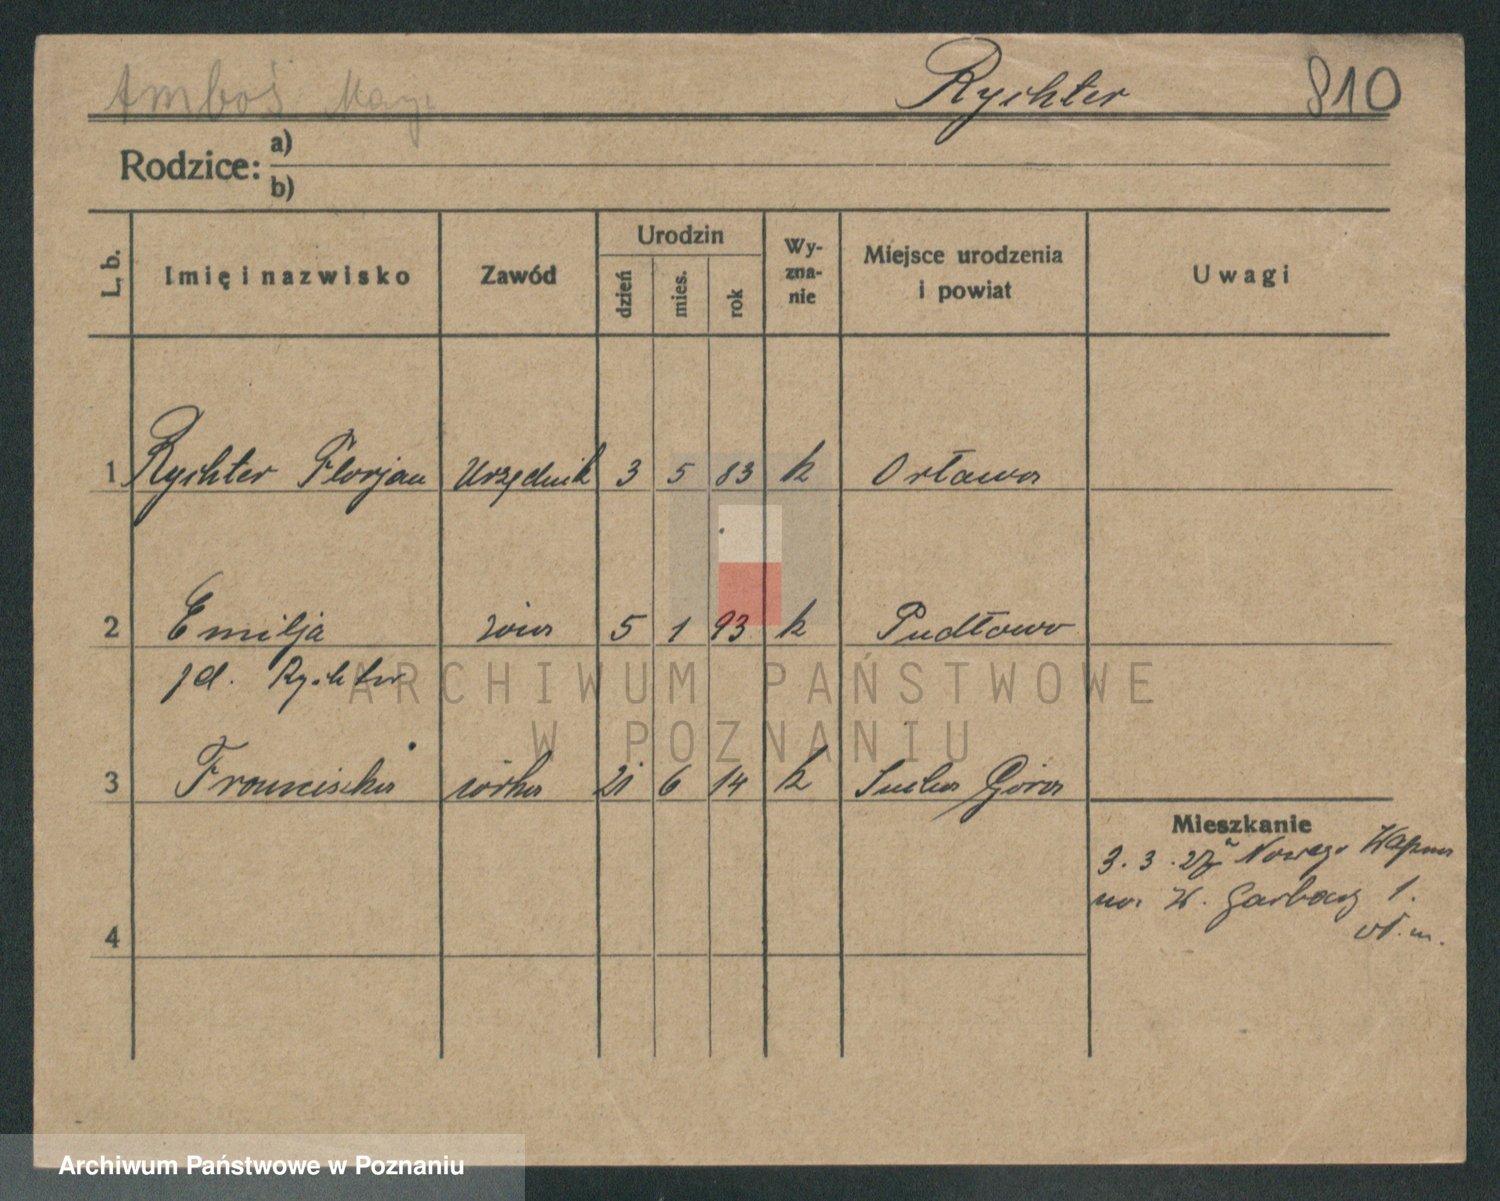 Amboś Rychter 810
Rodzice: a)
b)
L. b. Imię i nazwisko Zawód Urodzin dzień mies. rok Wy-zna-nie Miejsce urodzenia i powiat Uwagi
1 Rychter Florjan Urzędnik 3 5 83 k Orława
2 Emilja żona 5 1 93 k Pudłowo
jd. Rychter
ARCHIWUM PAŃSTWOWE
W POZNANIU
3 Franciszka córka 21 6 14 k Sucha Góra
Mieszkanie
3. 3. 27 Nowego
W. Garbary 1.
4
Archiwum Państwowe w Poznaniu